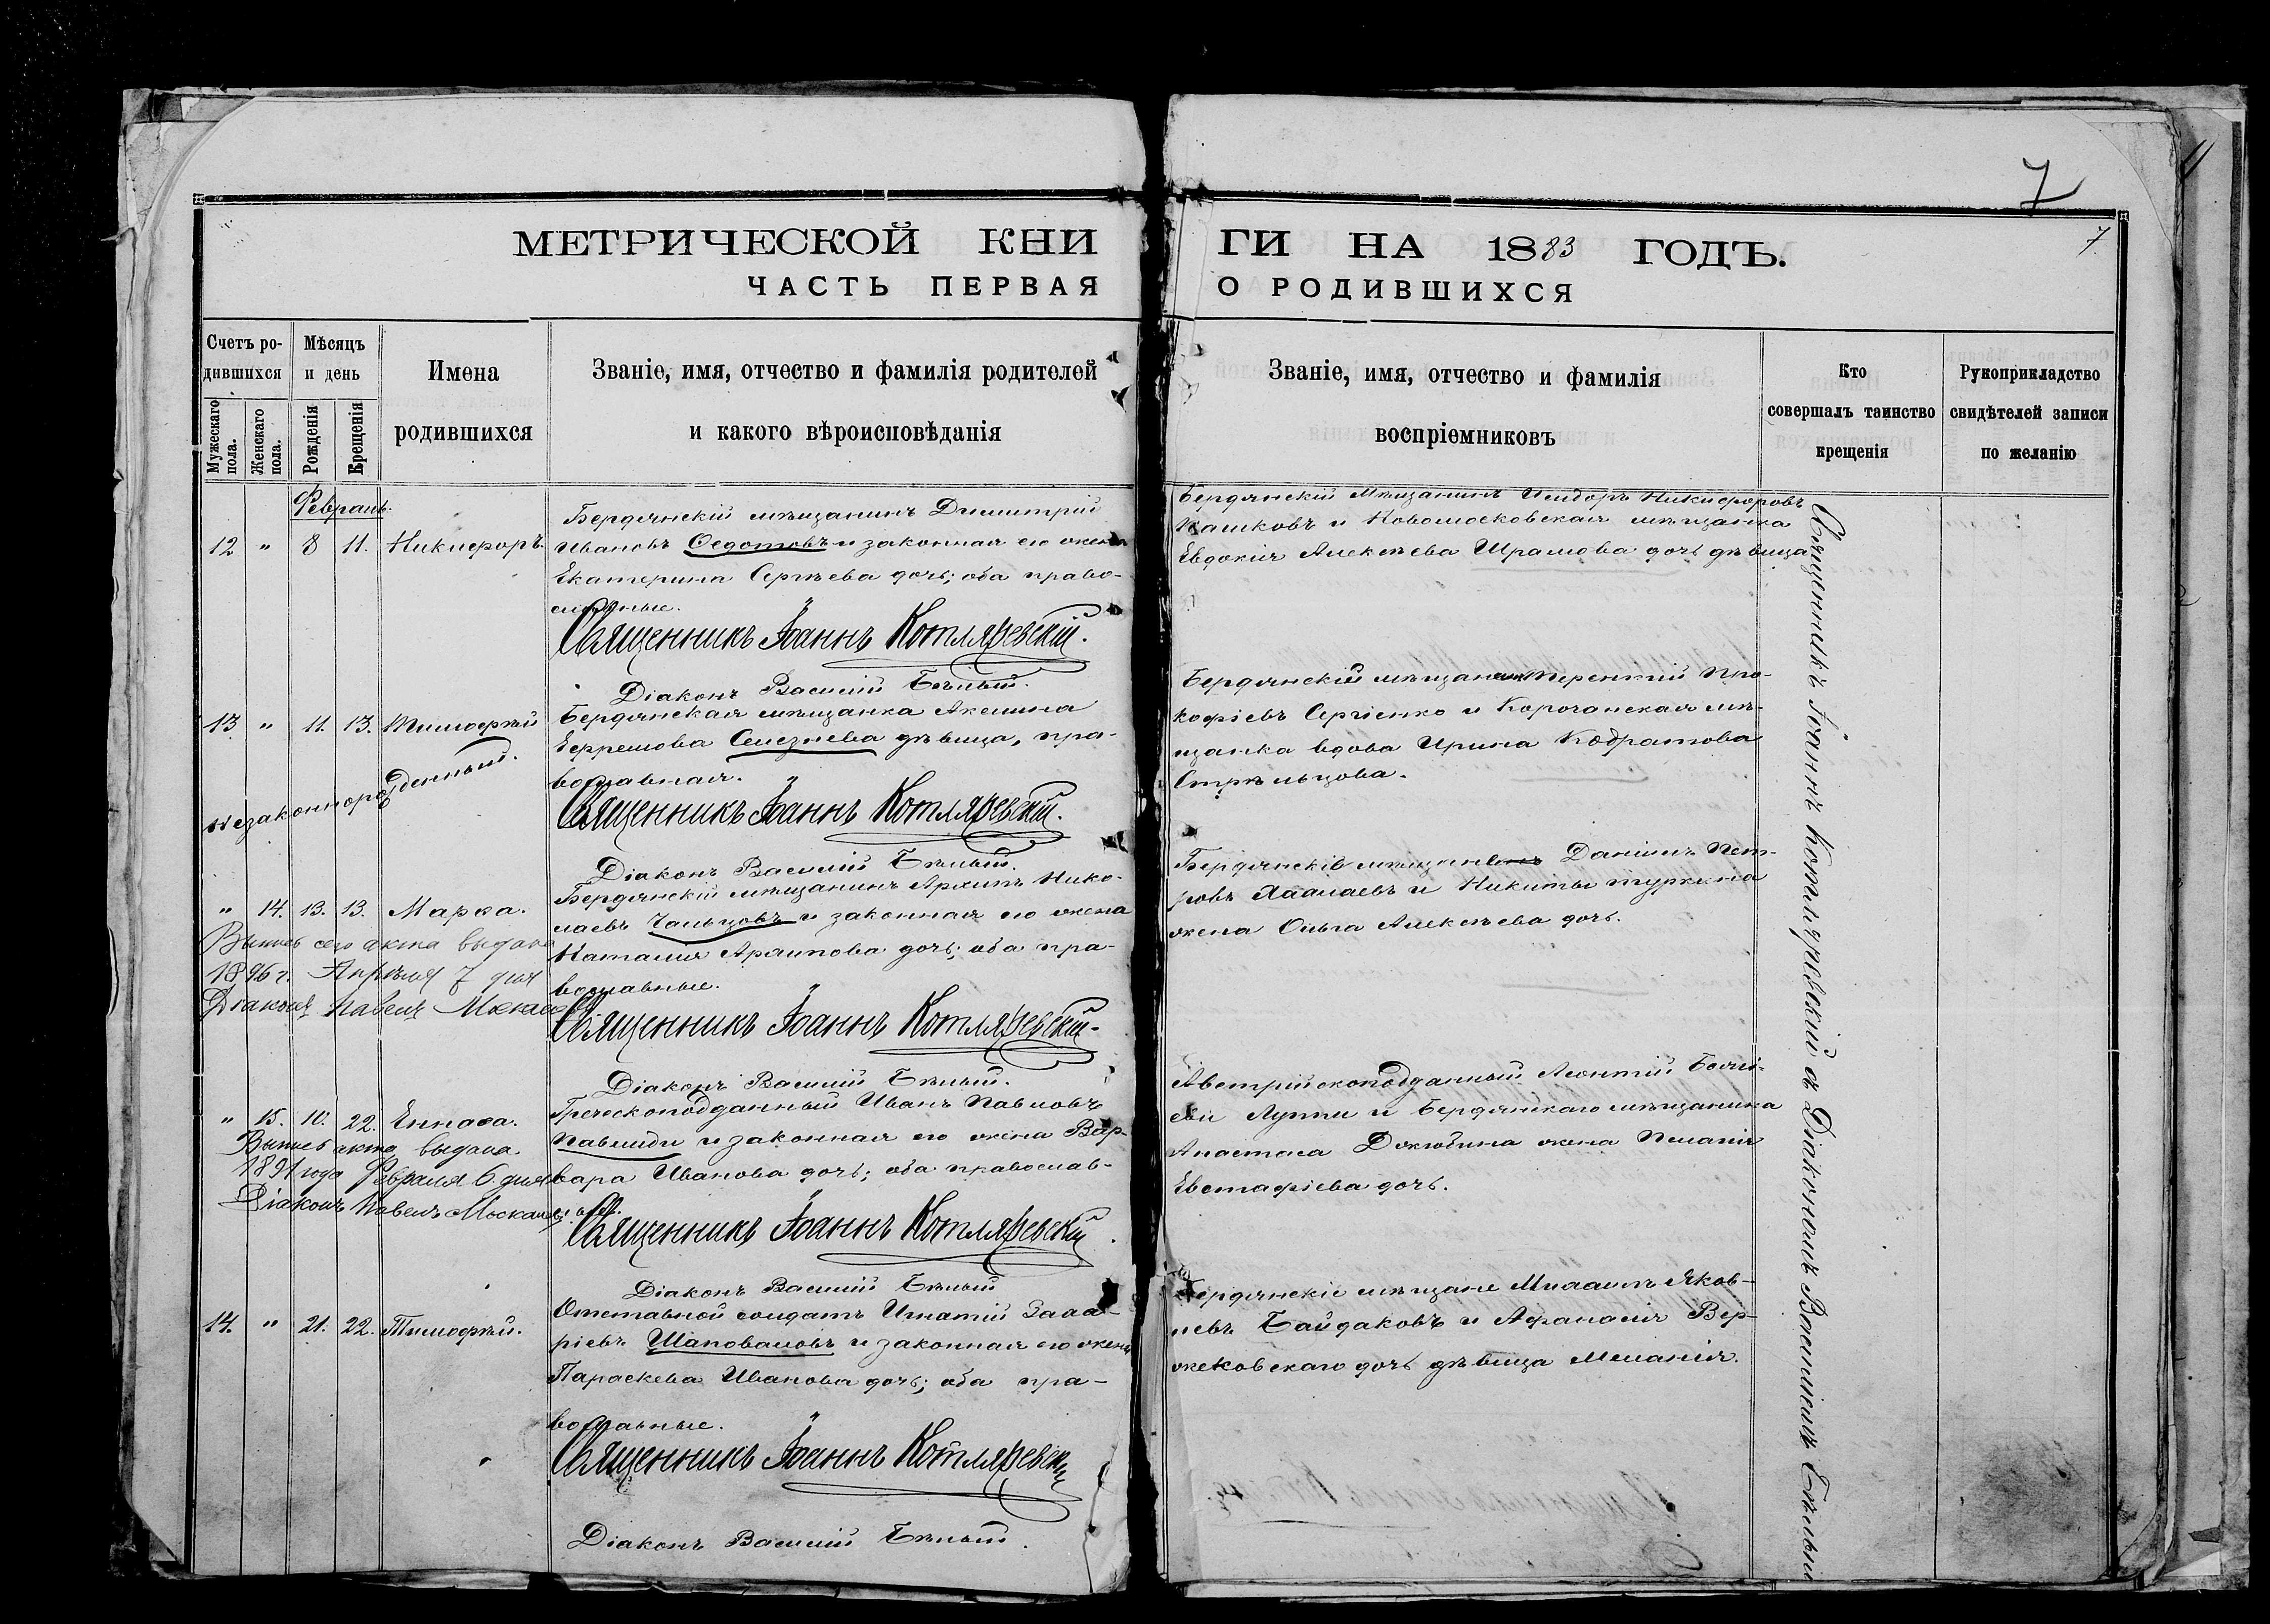 7
7
МЕТРИЧЕСКОЙ КНИ
ГИ НА 1883 ГОДЪ.
ЧАСТЬ ПЕРВАЯ
О РОДИВШИХСЯ
Счетъ ро-
дившихся
Мужескаго пола.
Женскаго пола.
Мѣсяцъ
и день
Рожденія
Крещенія
Имена
родившихся
Званіе, имя, отчество и фамилія родителей
и какого вѣроисповѣданія
Званіе, имя, отчество и фамилія
воспріемниковъ
Кто
совершалъ таинство
крещенія
Рукоприкладство
свидѣтелей записи
по желанію
Февраль
12 " 8 11. Никифоръ.
Бердянскій мѣщанинъ Димитрій
Ивановъ Ѳедотовъ и законная его жена
Екатерина Сергѣева дочь; оба право-
славные.
Священникъ Іоаннъ Котляревскій.
Діаконъ Василій Бѣлый.
Бердянскій Мѣщанинъ Исидоръ Никифоровъ
Пашковъ и Новомосковская мѣщанка
Евдокія Алексѣева Шрамова дочь дѣвица
13 " 11. 13. Тимофѣй
Незаконнорожденный.
Бердянская мѣщанка Акелина
Ефремова Селезнева дѣвица, пра-
вославная.
Священникъ Іоаннъ Котляревскій.
Діаконъ Василій Бѣлый.
Бердянскій мѣщанинъ Терентій Про-
кофіевъ Сергіенко и Корочанская мѣ-
щанка вдова Ирина Кодратова
Стрѣльцова.
" 14. 13. 13. Марѳа.
Выпись сего акта выдана
1896 г. Апрѣля 7 дня
Діаконъ Павелъ
Бердянскій мѣщанинъ Архипъ Нико-
лаевъ Чальцовъ и законная его жена
Наталия Архипова дочь; оба пра-
вославные.
Священникъ Іоаннъ Котляревскій.
Діаконъ Василій Бѣлый.
Даніилъ Пет-
ровъ и Никиты
жена Ольга Алексѣева дочь.
" 15. 10. 22. Еннаѳа.
Выпись акта выдана.
1891 года Февраля 6 дня
Діаконъ Павелъ
Греческоподданный Иванъ Павловъ
Павлиди и законная его жена Вар-
вара Иванова дочь; оба православ-
ные.
Священникъ Іоаннъ Котляревскій.
Діаконъ Василій Бѣлый
Австрійскоподданный Леонтій
и Бердянскаго мѣщанина
Анастаса жена Пелагія
Евстафіева дочь.
14. " 21. 22. Тимофѣй.
Отставной солдатъ Игнатій Заха-
ріевъ Шаповаловъ и законная его жена
Параскева Иванова дочь; оба пра-
вославные.
Священникъ Іоаннъ Котляревскій
Діаконъ Василій Бѣлый.
Бердянскіе мѣщане Михаилъ Яков-
левъ Байдаковъ и Афанасія Вер-
жековскаго дочь дѣвица Меланія.
Священникъ Іоаннъ Котляревскій съ Діакономъ Василіемъ Бѣлымъ